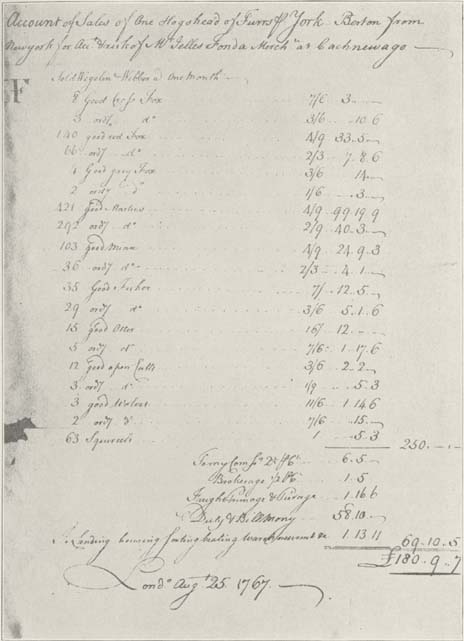 Account of Sales of One Hogshead of Furrs ⅌ York Berton from
New york for Accᵗ & risk of Mʳ Jelles Fonda Merchᵗ at Cachnewago
Sold Wigelin & Webber a One Month
8 Good Cross Fox 7/6 3
3 ordʸ dᵒ 3/6 10 6
140 good red Fox 4/9 33 5
66 ordʸ dᵒ 2/3 7 8 6
4 Good grey Fox 3/6 14
2 ordʸ dᵒ 1/6 3
421 good Martins 4/9 99 19 9
292 ordʸ dᵒ 2/9 40 3
103 good Minx 4/9 24 9 3
36 ordʸ dᵒ 2/3 4 1
35 Good Fisher 7/ 12 5
29 ordʸ dᵒ 3/6 5 1 6
15 good Otter 16/ 12
5 ordʸ dᵒ 7/6 1 17 6
12 good open Catts 3/6 2 2
3 ordʸ dᵒ 1/9 5 3
3 good Wolves 11/6 1 14 6
2 ordʸ dᵒ 7/6 15
63 Squerrels 1 5 3
250
6 5
Brokerage 1 5
Fraight Primage & 1 16 6
Duty & Bill Mony 58 10
Landing housing beating 1 13 11 69 10 5
£180 9 7
Londᵒ Augᵗ 25 1767